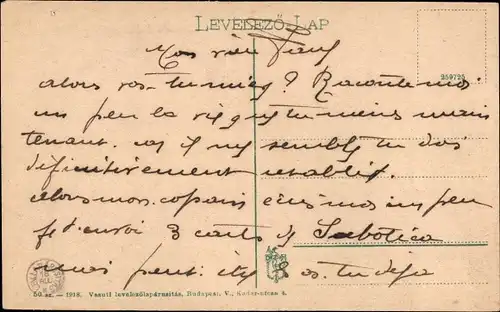 LEVELEZŐ-LAP
259725
Mon vieux
alors vas-tu mieux ? Raconte moi
un peu la vie que tu mènes main
tenant. car il me semble tu dois
définitivement rétabli.
alors mon copain écris moi un peu
je t'envoi 3 carts de Subotica
mais peut: être as. tu déjà
50 sz. — 1918. Vasuti levelezőlapárusitás, Budapest. V., Kádár-utcza 4.